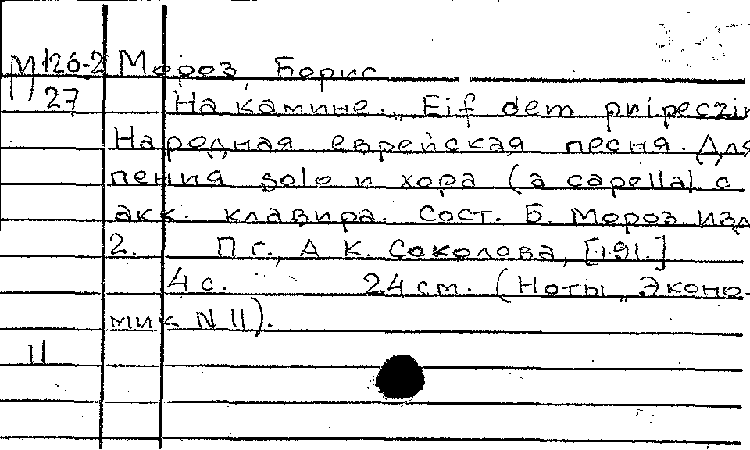 М 126-2 Мороз, Борис
27 На камине. „Eif dem pripeczi
Народная еврейская песня. Для
пения solo и хора (a capella) с
акк. клавира. Сост. Б. Мороз. Изд
2. Пг., А. К. Соколова, [191.]
4 с. 24 см. (Ноты „Эконо-
мик N 11).
11